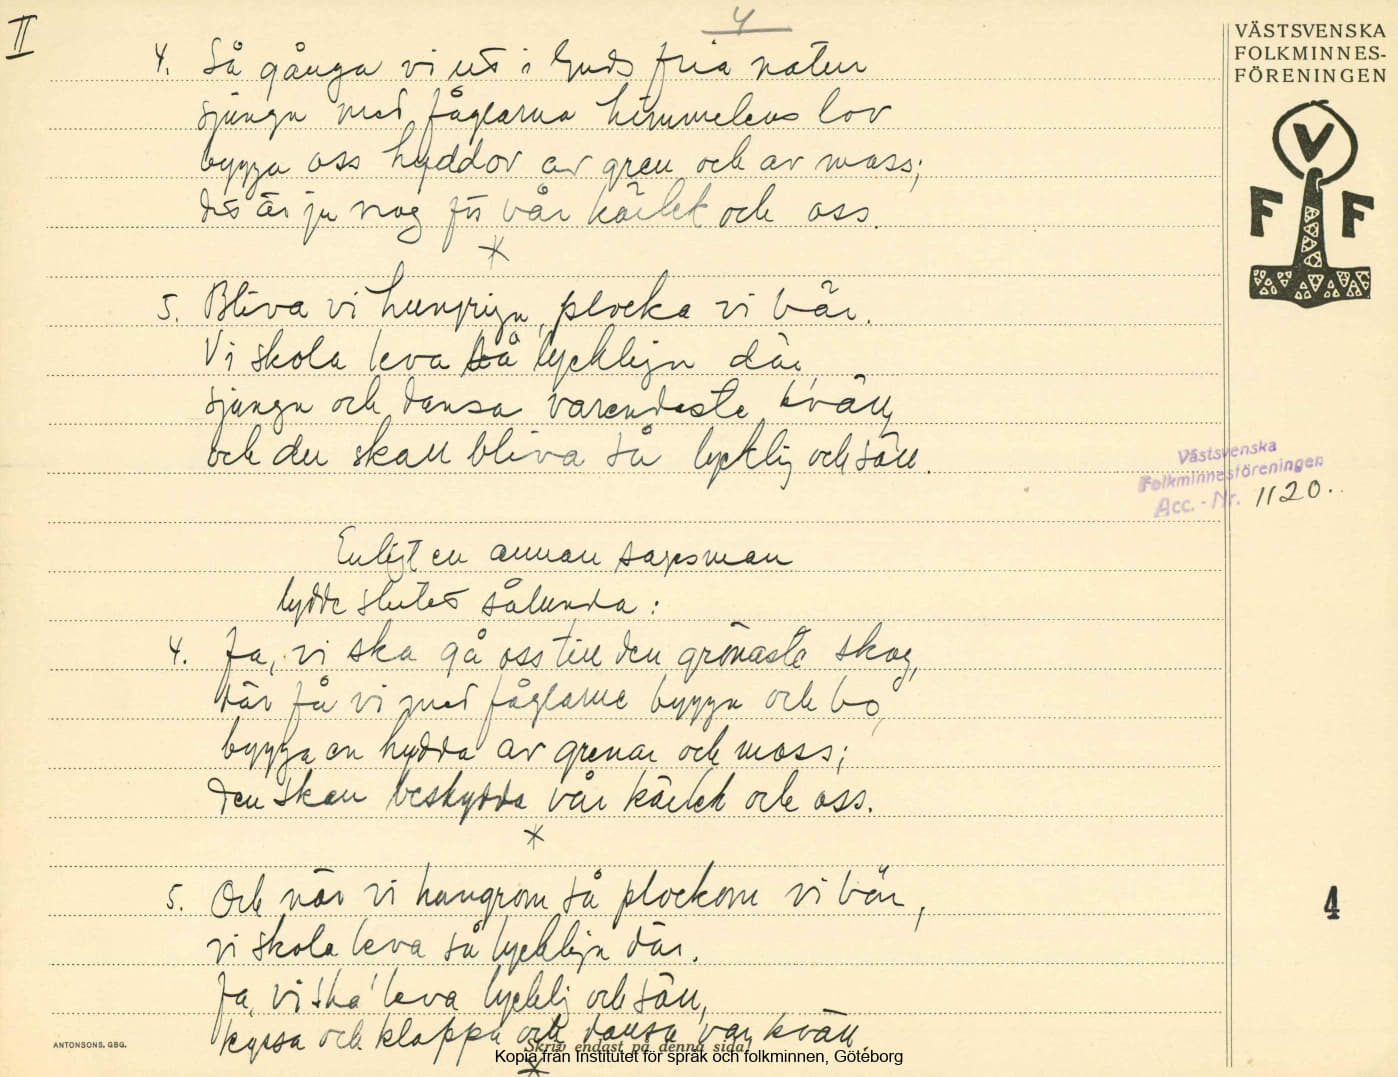 II
4
VÄSTSVENSKA
FOLKMINNES-
FÖRENINGEN
V
F F
4. Så gånga vi ut i Guds fria natur
sjunga med fåglarna himmelens lov
bygga oss hyddor av gren och av moss;
det är ju nog för vår kärlek och oss.
*
5. Bliva vi hungriga, plocka vi bär.
Vi skola leva så lyckliga där,
sjunga och dansa varendaste kväll,
och du skall bliva så lycklig och säll.
Västsvenska
Folkminnesföreningen
Acc. - Nr. 1120.
Enligt en annan sagesman
lydde slutet sålunda:
4. Ja, vi ska gå oss till den grönaste skog,
där få vi med fåglarne bygga och bo,
bygga en hydda av grenar och moss;
den skall beskydda vår kärlek och oss.
*
5. Och när vi hungrom så plockom vi bär,
vi skola leva så lyckliga där.
Ja, vi ska' leva lycklig och säll,
kyssa och klappa och dansa var kväll.
*
4
ANTONSONS. GBG.
Skriv endast på denna sida!
Kopia från Institutet för språk och folkminnen, Göteborg